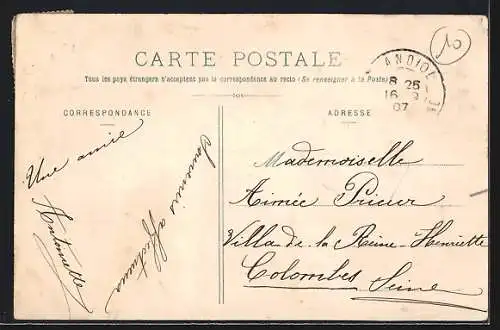 10
CARTE POSTALE
Tous les pays étrangers n'acceptent pas la correspondance au recto (Se renseigner à la Poste)
8 25
16 9
07
CORRESPONDANCE
ADRESSE
Souvenirs affectueux
Une amie
Antoinette
Mademoiselle
Aimée Prieur
Villa de la Reine-Henriette
Colombes Seine